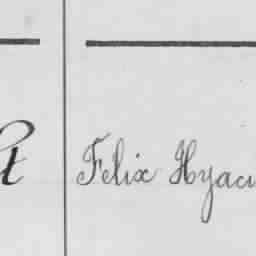 Felix Hyaci